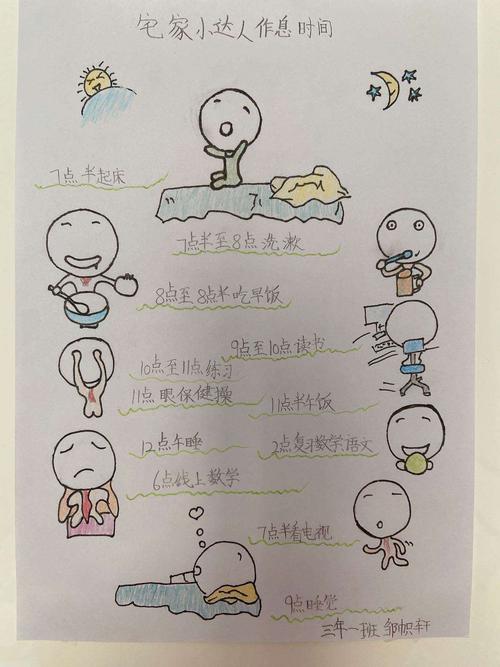 宅家小达人作息时间
7点半起床
7点半至8点洗漱
8点至8点半吃早饭
9点至10点读书
10点至11点练习
11点眼保健操
11点半午饭
12点午睡
2点复习数学语文
6点线上数学
7点半看电视
9点睡觉
三年一班 邹帜轩